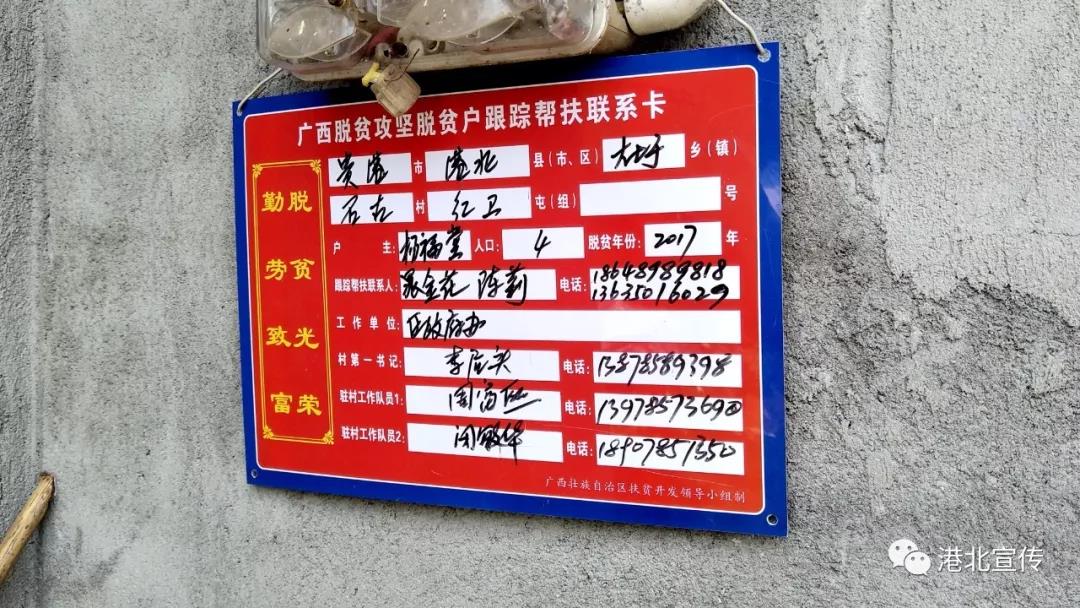 广西脱贫攻坚脱贫户跟踪帮扶联系卡
勤劳致富
脱贫光荣
贵港市 港北 县(市、区) 大圩 乡(镇)
石古 村 红卫 屯(组) 号
户主: 杨福堂 人口: 4 脱贫年份: 2017 年
跟踪帮扶联系人: 金花 陈莉 电话: 18648989818
13635016029
工作单位: 区政府办
村第一书记: 李 电话: 13878589398
驻村工作队员1: 周 电话:
驻村工作队员2: 电话: 18907851350
广西壮族自治区扶贫开发领导小组制
港北宣传